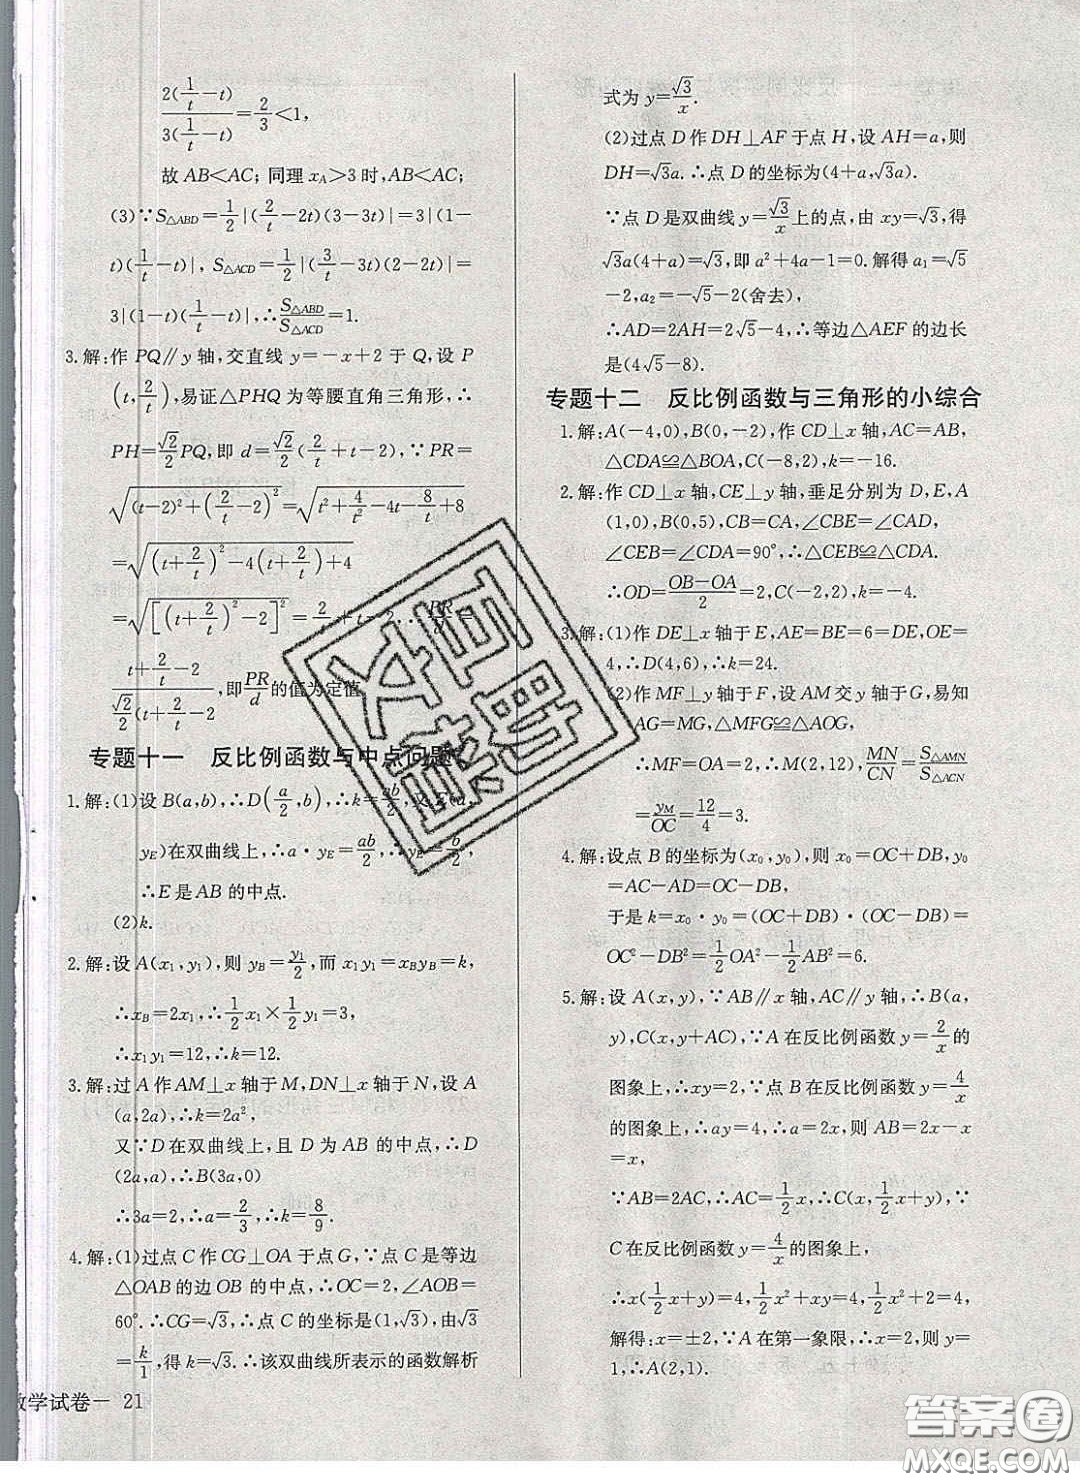 2(1/t－t)/3(1/t－t)＝2/3＜1,
故 AB＜AC; 同理 x_A＞3 时, AB＜AC;
(3)∵S△ABD＝1/2|(2/t－2t)(3－3t)|＝3|(1－
t)(1/t－t)|, S△ACD＝1/2|(3/t－3t)(2－2t)|＝
3|(1－t)(1/t－t)|,∴S△ABD/S△ACD＝1.
3.解:作 PQ∥y 轴,交直线 y＝－x＋2 于 Q,设 P
(t,2/t),易证△PHQ 为等腰直角三角形,∴
PH＝√2/2PQ,即 d＝√2/2(2/t＋t－2). ∵PR＝
√((t－2)²＋(2/t－2)²)＝√(t²＋4/t²－4t－8/t＋8)
＝√((t＋2/t)²－4(t＋2/t)＋4)
＝√([(t＋2/t)－2]²)＝2/t＋t－2.
(t＋2/t－2)/(√2/2(t＋2/t－2)),即PR/d的值为定值
专题十一　反比例函数与中点问题
1.解:(1)设 B(a,b),∴D(a/2,b),∴k＝ab/2,又 E(a,
y_E)在双曲线上,∴a·y_E＝ab/2,∴y_E＝b/2,
∴E 是 AB 的中点.
(2)k.
2.解:设 A(x₁,y₁),则 y_B＝y₁/2,而 x₁y₁＝x_By_B＝k,
∴x_B＝2x₁,∴1/2x₁×1/2y₁＝3,
∴x₁y₁＝12,∴k＝12.
3.解:过 A 作 AM⊥x 轴于 M,DN⊥x 轴于 N,设 A
(a,2a),∴k＝2a²,
又∵D 在双曲线上,且 D 为 AB 的中点,∴D
(2a,a),∴B(3a,0)
∴3a＝2,∴a＝2/3,∴k＝8/9.
4.解:(1)过点 C 作 CG⊥OA 于点 G,∵点 C 是等边
△OAB 的边 OB 的中点,∴OC＝2,∠AOB＝
60°.∴CG＝√3,∴点 C 的坐标是(1,√3),由√3
＝k/1,得 k＝√3.∴该双曲线所表示的函数解析
数学试卷－ 21
式为 y＝√3/x.
(2)过点 D 作 DH⊥AF 于点 H,设 AH＝a,则
DH＝√3a.∴点 D 的坐标为(4＋a,√3a).
∵点 D 是双曲线 y＝√3/x上的点,由 xy＝√3,得
√3a(4＋a)＝√3,即 a²＋4a－1＝0.解得 a₁＝√5
－2,a₂＝－√5－2(舍去),
∴AD＝2AH＝2√5－4,∴等边△AEF 的边长
是(4√5－8).
专题十二　反比例函数与三角形的小综合
1.解:A(－4,0),B(0,－2),作 CD⊥x 轴,AC＝AB,
△CDA≌△BOA,C(－8,2),k＝－16.
2.解:作 CD⊥x 轴,CE⊥y 轴,垂足分别为 D,E,A
(1,0),B(0,5),CB＝CA,∠CBE＝∠CAD,
∠CEB＝∠CDA＝90°,∴△CEB≌△CDA.
∴OD＝(OB－OA)/2＝2,C(－2,2),k＝－4.
3.解:(1)作 DE⊥x 轴于 E,AE＝BE＝6＝DE,OE＝
4,∴D(4,6),∴k＝24.
(2)作 MF⊥y 轴于 F,设 AM 交 y 轴于 G,易知
AG＝MG,△MFG≌△AOG,
∴MF＝OA＝2,∴M(2,12),MN/CN＝S△AMN/S△ACN
＝y_M/OC＝12/4＝3.
4.解:设点 B 的坐标为(x₀,y₀),则 x₀＝OC＋DB,y₀
＝AC－AD＝OC－DB,
于是 k＝x₀·y₀＝(OC＋DB)·(OC－DB)＝
OC²－DB²＝1/2OA²－1/2AB²＝6.
5.解:设 A(x,y),∵AB∥x 轴,AC∥y 轴,∴B(a,
y),C(x,y＋AC),∵A 在反比例函数 y＝2/x的
图象上,∴xy＝2,∵点 B 在反比例函数 y＝4/x
的图象上,∴ay＝4,∴a＝2x,则 AB＝2x－x
＝x,
∵AB＝2AC,∴AC＝1/2x,∴C(x,1/2x＋y),∵
C 在反比例函数 y＝4/x的图象上,
∴x(1/2x＋y)＝4,1/2x²＋xy＝4,1/2x²＋2＝4,
解得:x＝±2,∵A 在第一象限,∴x＝2,则 y＝
1,∴A(2,1).
答案圈
MXQE.COM